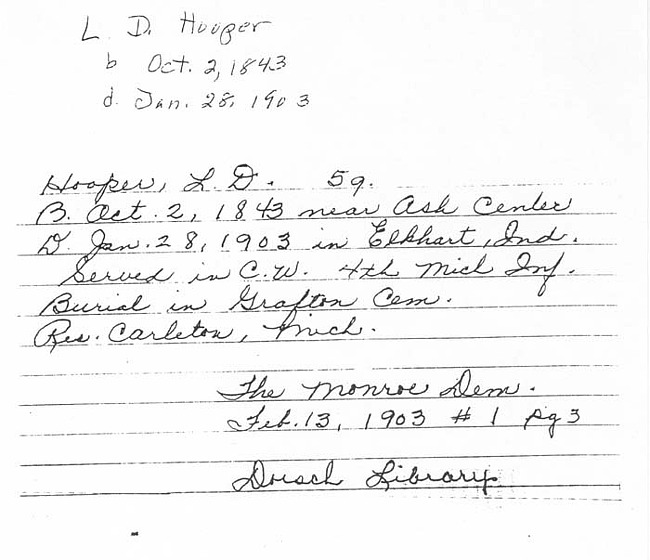 L. D. Hooper
b Oct. 2, 1843
d. Jan. 28, 1903
Hooper, L. D. 59.
B. Oct. 2, 1843 near Ash Center
D. Jan. 28, 1903 in Elkhart, Ind.
Served in C.W. 4th Mich Inf.
Burial in Grafton Cem.
Res. Carleton, Mich.
The Monroe Dem.
Feb. 13, 1903 # 1 pg 3
Dorsch Library